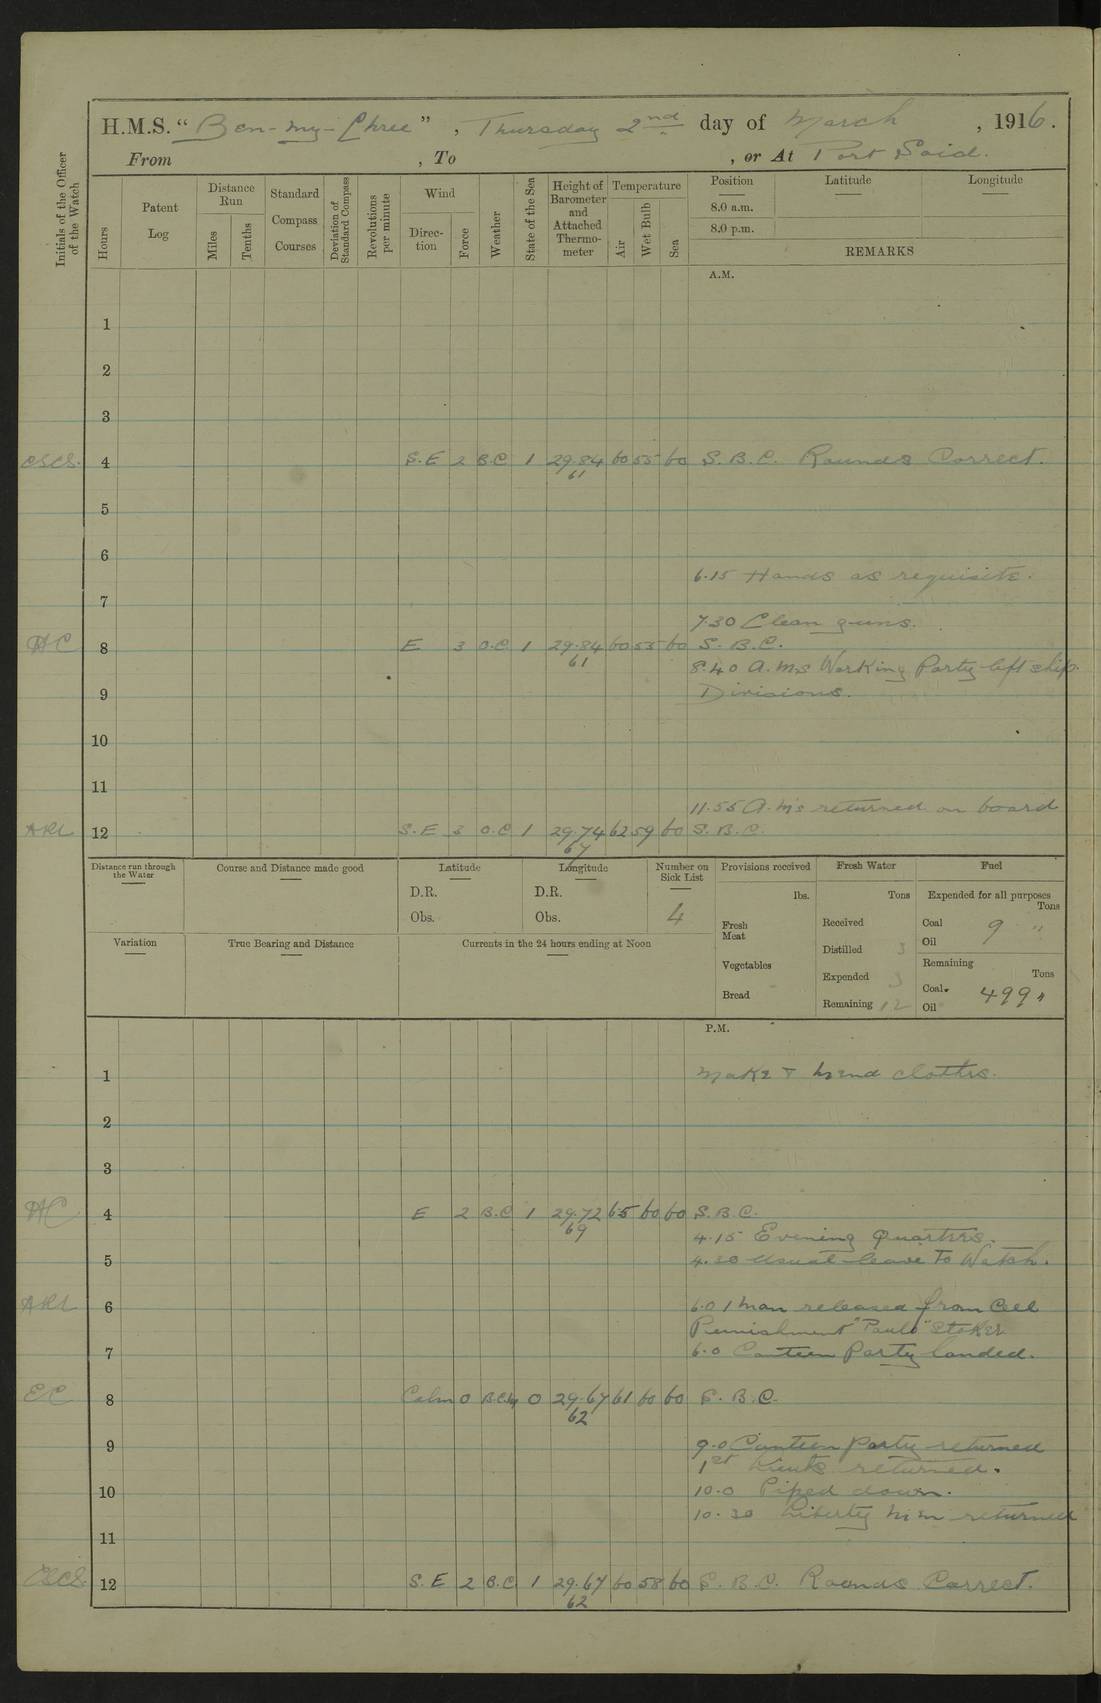 H.M.S. "Ben-my-Chree", Thursday 2nd day of March, 1916.
From , To , or At Port Said.
Initials of the Officer of the Watch
Hours
Patent Log
Distance Run
Miles
Tenths
Standard Compass Courses
Deviation of Standard Compass
Revolutions per minute
Wind
Direction
Force
Weather
State of the Sea
Height of Barometer and Attached Thermometer
Temperature
Air
Wet Bulb
Sea
Position Latitude Longitude
8.0 a.m.
8.0 p.m.
REMARKS
A.M.
1
2
3
4 S.E 2 B.C 1 29.84 60 55 60 S.B.C. Rounds Correct.
61
5
6
6.15 Hands as requisite.
7
7.30 Clean guns.
HC 8 E 3 O.C 1 29.84 60 55 60 S.B.C.
61
8.40 A.Ms Working Party left ship.
9 Divisions.
10
11
11.55 A.Ms returned on board
ARL 12 S.E 3 O.C 1 29.74 62 59 60 S.B.C.
67
Distance run through the Water
Course and Distance made good
Latitude
D.R.
Obs.
Longitude
D.R.
Obs.
Number on Sick List
4
Provisions received
lbs.
Fresh Meat
Vegetables
Bread
Fresh Water
Tons
Received
Distilled 3
Expended 3
Remaining 12
Fuel
Expended for all purposes
Tons
Coal 9 "
Oil
Remaining
Tons
Coal 499 "
Oil
Variation
True Bearing and Distance
Currents in the 24 hours ending at Noon
P.M.
1 Make & mend clothes.
2
3
HC 4 E 2 B.C 1 29.72 65 60 60 S.B.C.
69
4.15 Evening Quarters.
5 4.30 Usual leave to Watch.
ARL 6 6.0 1 man released from Cell
Punishment "Paul" Stoker
7 6.0 Canteen Party landed.
EC 8 Calm 0 B.C.M 0 29.67 61 60 60 S.B.C.
62
9 9.0 Canteen party returned
1st returned.
10 10.0 Piped down.
10.30 Liberty men returned
11
12 S.E 2 B.C 1 29.67 60 58 60 S.B.C. Rounds Correct.
62